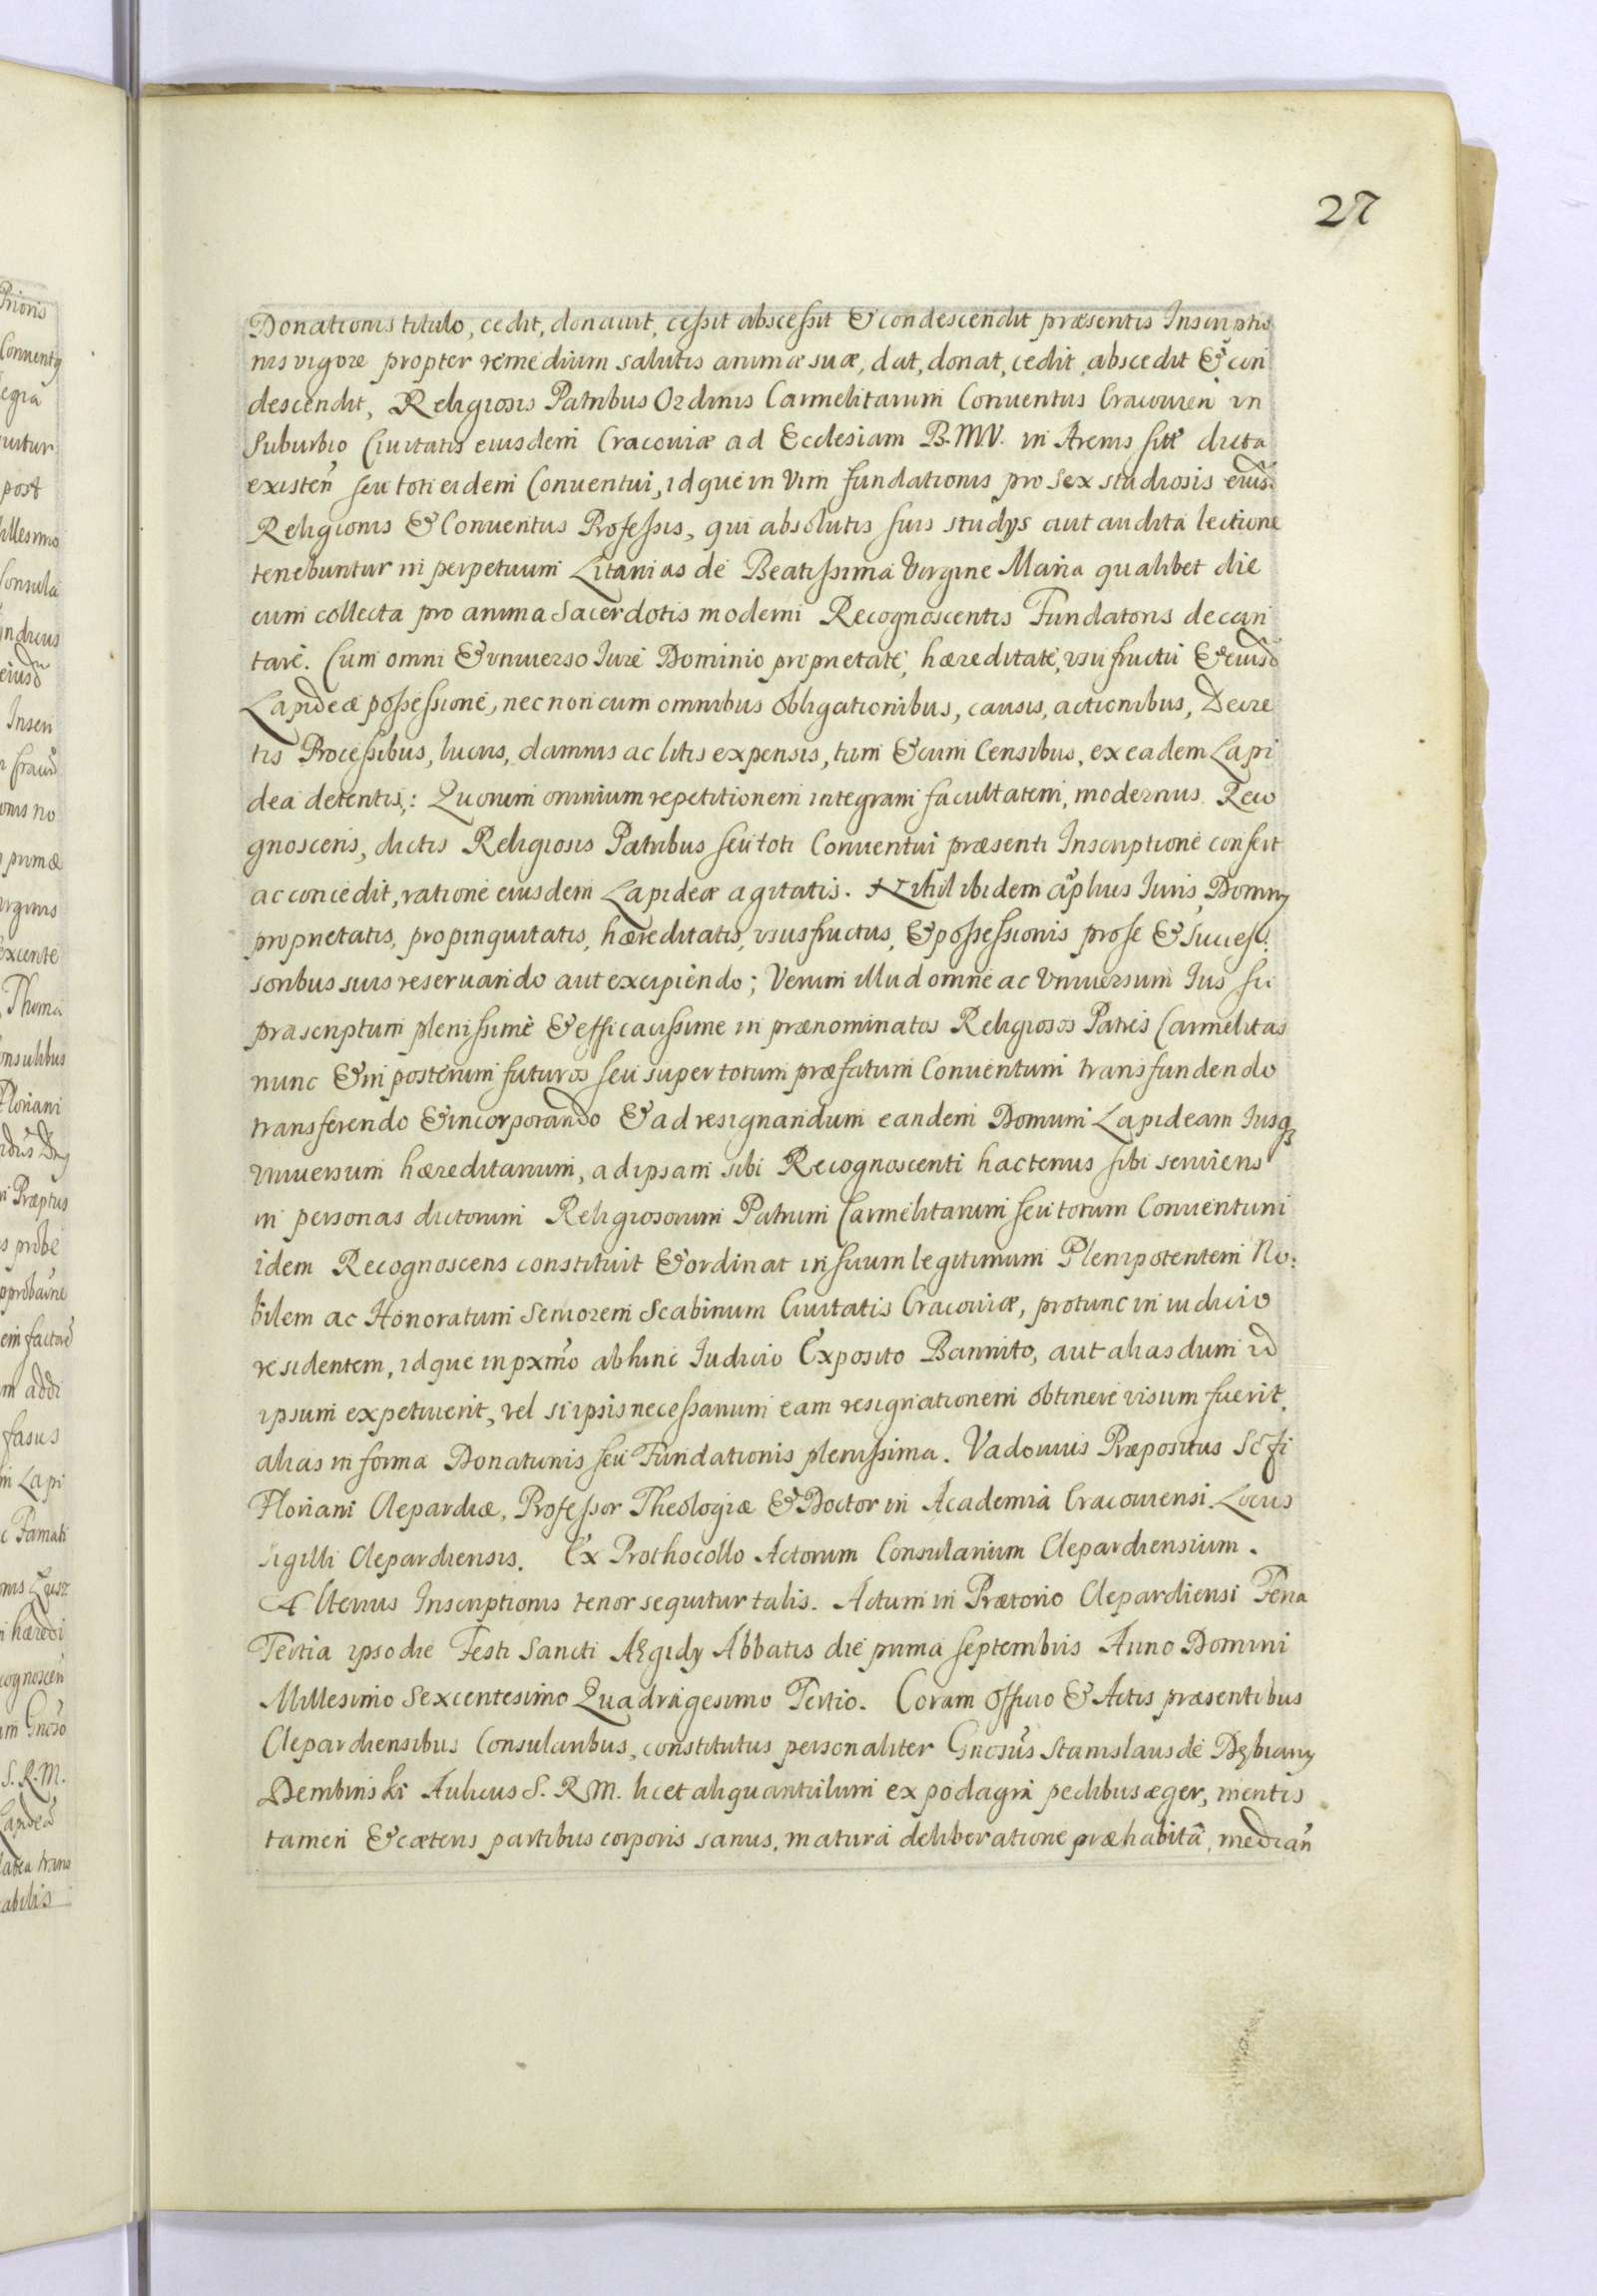 27
Donationis titulo, cedit, donauit, cessit abscessit & condescendit præsentis Inscriptio
nis vigore propter remedium salutis animæ suæ, dat, donat, cedit, abscedit & con
descendit, Religiosis Patribus Ordinis Carmelitarum Conuentus Cracouien̄ in
Suburbio Ciuitatis eiusdem Cracouiæ ad Ecclesiam B.M.V. in Arenis sitæ dicta
existen̄ seu toti eidem Conuentui, idque in Vim fundationis pro sex studiosis eius:
Religionis & Conuentus Professis, qui absolutis suis studys aut audita lectione
tenebuntur in perpetuum Litanias de Beatissima Virgine Maria qualibet die
cum collecta pro anima Sacerdotis moderni Recognoscentis Fundatoris decan
tare. Cum omni & vniuerso Iure Dominio proprietate, hæreditate, vsu fructu & eiusd
Lapideæ possessione, nec non cum omnibus obligationibus, causis, actionibus, Decre
tis Processibus, lucris, damnis ac litis expensis, tum & cum Censibus, ex eadem Lapi
dea detentis,: Quorum omnium repetitionem integram facultatem, modernus Reco
gnoscens, dictis Religiosis Patribus seu toti Conuentui præsenti Inscriptione confert
ac concedit, ratione eiusdem Lapideæ agitatis. Nihil ibidem āplius Iuris, Dominy
proprietatis, propinquitatis, hæreditatis, vsusfructus, & possessionis pro se & Succes:
soribus suis reseruando aut excipiendo; Verum illud omne ac Vniuersum Ius su
prascriptum plenissime & efficacissime in prænominatos Religiosos Patres Carmelitas
nunc & in posterum futuros seu super totum præfatum Conuentum transfundendo
transferendo & incorporando & ad resignandum eandem Domum Lapideam Iusq3
vniuersum hæreditarium, ad ipsam sibi Recognoscenti hactenus sibi seruiens
in personas dictorum Religiosorum Patrum Carmelitarum seu totum Conuentum
idem Recognoscens constituit & ordinat in suum legitimum Plenipotentem No:
bilem ac Honoratum Seniorem Scabinum Ciuitatis Cracouiæ, pro tunc in iudicio
residentem, idque in pxmō abhinc Iudicio Exposito Bannito, aut alias dum id
ipsum expetiuerit, vel si ipsis necessarium eam resignationem obtinere visum fuerit,
alias in forma Donatinis seu Fundationis plenissima. Vadouius Præpositus Sčti
Floriani Clepardiæ, Professor Theologiæ & Doctor in Academia Cracouiensi. Locus
sigilli Clepardiensis. Ex Prothocollo Actorum Consularium Clepardiensium.
Alterius Inscriptionis tenor sequitur talis. Actum in Prætorio Clepardiensi Feria
Tertia ipso die Festi Sancti Ægidy Abbatis die prima septembris Anno Domini
Millesimo Sexcentesimo Quadragesimo Tertio. Coram Officio & Actis præsentibus
Clepardiensibus Consularibus, constitutus personaliter Gnosūs Stanislaus de Dębiany
Dembinski Aulicus S.R.M. licet aliquantulum ex podagra pedibus æger, mentis
tamen & cæteris partibus corporis sanus, matura deliberatione præhabitâ, median̄